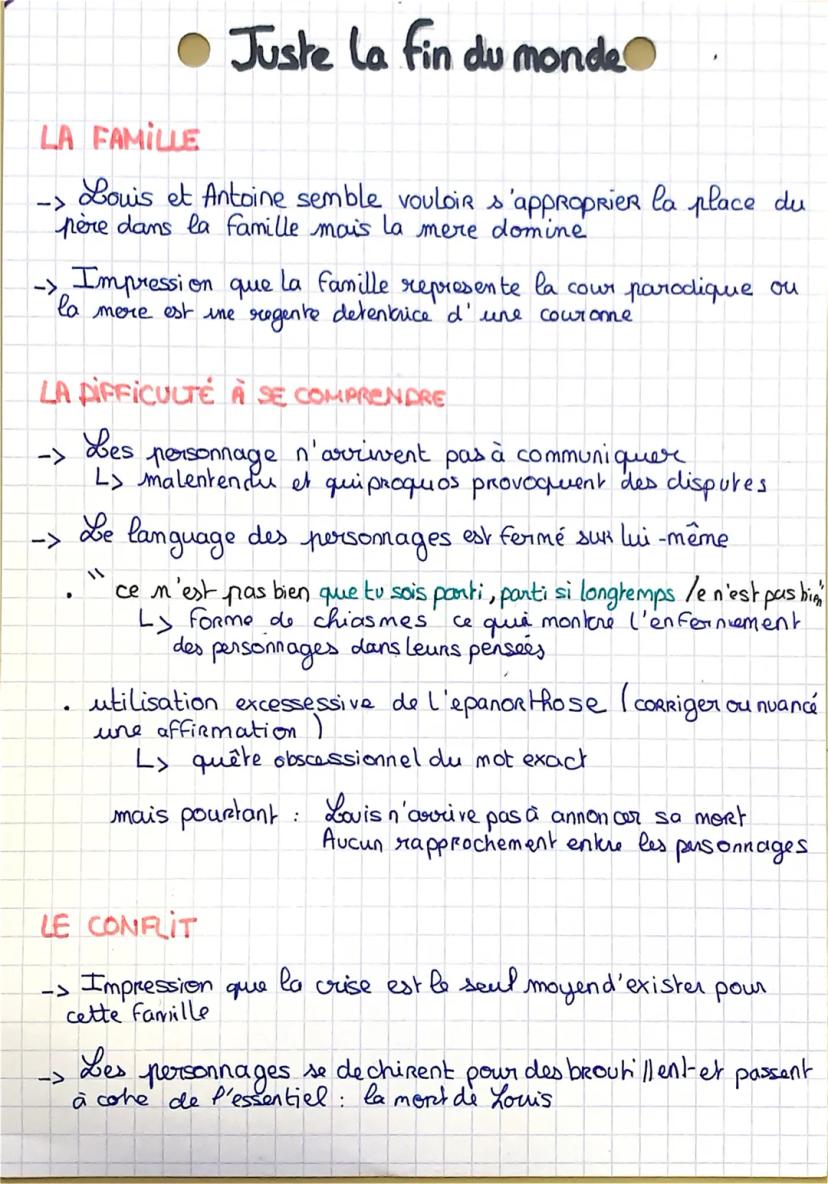 Juste la fin du monde
LA FAMILLE
-> Louis et Antoine semble vouloir s'approprier la place du
père dans la famille mais la mere domine
-> Impression que la famille represente la cour parodique ou
la mere est une regente detentrice d'une couronne
LA DIFFICULTÉ À SE COMPRENDRE
-> Les personnage n'arrivent pas à communiquer
L> malentendu et quiproquos provoquent des disputes
-> Le language des personnages est fermé sur lui-même
. " ce n'est pas bien que tu sois parti, parti si longtemps /ce n'est pas bien"
L> forme de chiasmes ce qui montre l'enfermement
des personnages dans leurs pensées
. utilisation excessessive de l'epanorthose (corriger ou nuancé
une affirmation)
L> quête obscessionnel du mot exact
mais pourtant : Louis n'arrive pas à annoncer sa mort
Aucun rapprochement entre les personnages
LE CONFLIT
-> Impression que la crise est le seul moyend'exister pour
cette famille
-> Les personnages se dechirent pour des et passent
à cote de l'essentiel : la mort de Louis